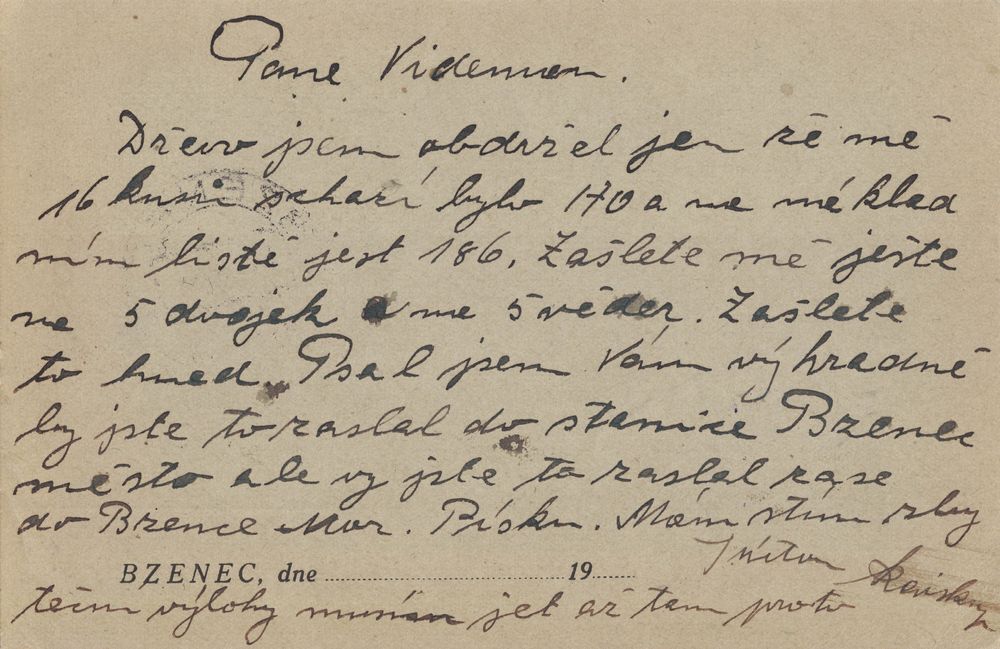 Pane Videman.
Dřevo jsem obdržel jen že mě
16 kusů schazí bylo 170 a na mé klad
ním listě jest 186. Zašlete mě ješte
na 5 dvojek a na 5 věder. Zašlete
to hned. Psal jsem Vám výhradně
by jste to zaslal do stanice Bzenec
město ale vy jste to zaslal zase
do Bzence Mor. Písku. Mám stím zby
BZENEC, dne 19
tečm výlohy musím jet až tam proto